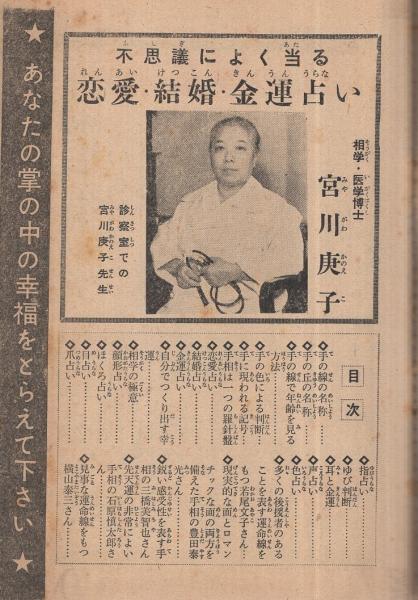 不思議によく当る
恋愛・結婚・金運占い
相学・医学博士
宮川庚子
診察室での
宮川庚子先生
★あなたの掌の中の幸福をとらえて下さい★
目次
◆手の線の名称
◆手の丘の名称
◆手の線で年齢を見る
方法
◆手の色による判断
◆手に現われる記号
◆手相は一つの羅針盤
◆恋愛占い
◆結婚占い
◆金運占い
◆自分でつくり出す幸
運
◆相学の極意
◆顔形占い
◆ほくろ占い
◆目占い
◆爪占い
◆指占い
◆ゆび判断
◆耳と金運
◆声占い
◆色占い
◆多くの後援者のある
ことを表す運命線を
もつ若尾文子さん
◆現実的な面とロマン
チックな面の両方を
備えた手相の豊田泰
光さん
◆鋭い感受性を表す手
相の三橋美智也さん
◆先天運の非常によい
手相の石原慎太郎さ
ん
◆見事な運命線をもつ
横山泰三さん